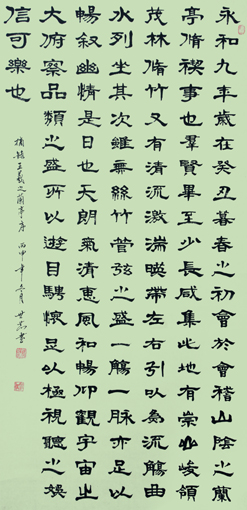 永和九年歲在癸丑暮春之初會於會稽山陰之蘭
亭脩禊事也羣賢畢至少長咸集此地有崇山峻領
茂林脩竹又有清流激湍暎帶左右引以為流觴曲
水列坐其次雖無絲竹管弦之盛一觴一詠亦足以
暢叙幽情是日也天朗氣清惠風和暢仰觀宇宙之
大俯察品類之盛所以遊目騁懷足以極視聽之娛
信可樂也
摘錄王羲之蘭亭序 丙申年 月 書